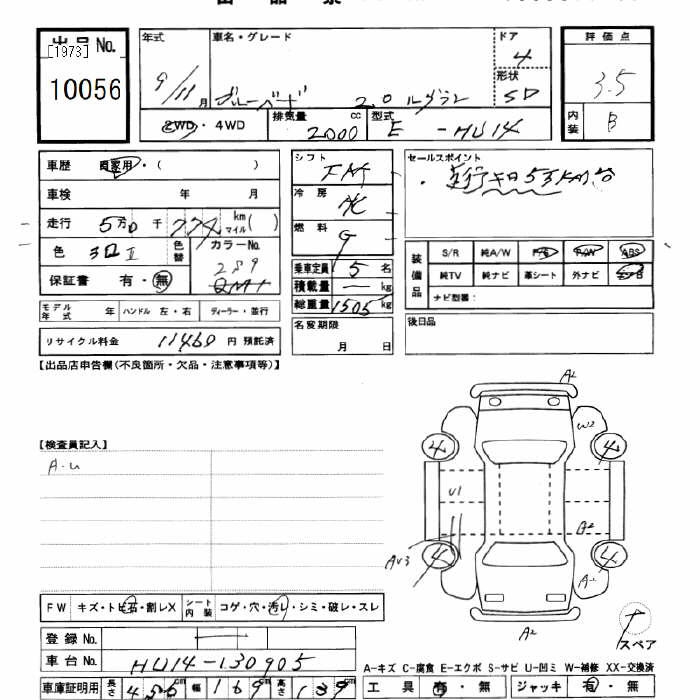 出品No.
[1973]
10056
年式
9/11 月
車名・グレード
ブルーバード 2.0 ルグラン
ドア
4
形状
SD
評価点
3.5
内装
B
2WD・4WD
排気量 2000 cc
型式 E - HU14
車歴 自家用・( )
車検 年 月
走行 5万0千774 km マイル( )
色 シロⅡ
色替
カラーNo.
289
QM1
保証書 有・無
モデル年式 年 ハンドル 左・右 ディーラー・並行
リサイクル料金 11460 円 預託済
シフト
FAT
冷房
燃料
G
乗車定員 5 名
積載量 — kg
総重量 1505 kg
名変期限
月 日
セールスポイント
・走行キロ5万KM台
装備品
S/R 純A/W P/S P/W ABS
純TV 純ナビ 革シート 外ナビ エアB
ナビ型番:
後日品
【出品店申告欄(不良箇所・欠品・注意事項等)】
【検査員記入】
A.U
A2
W2
4 4
U1
A2
AU3
4 4
A1
A2
スペア
FW キズ・トビ石・割レX シート内装 コゲ・穴・汚レ・シミ・破レ・スレ
登録No.
車台No. HU14-130905
車庫証明用 長さ 456 cm 幅 169 cm 高さ 139
A-キズ C-腐食 E-エクボ S-サビ U-凹ミ W-補修 XX-交換済
工具 有・無 ジャッキ 有・無